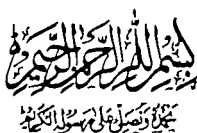 بِسْمِ اللّٰهِ الرَّحْمٰنِ الرَّحِيْمِ
نحمده ونصلى على رسوله الكريم